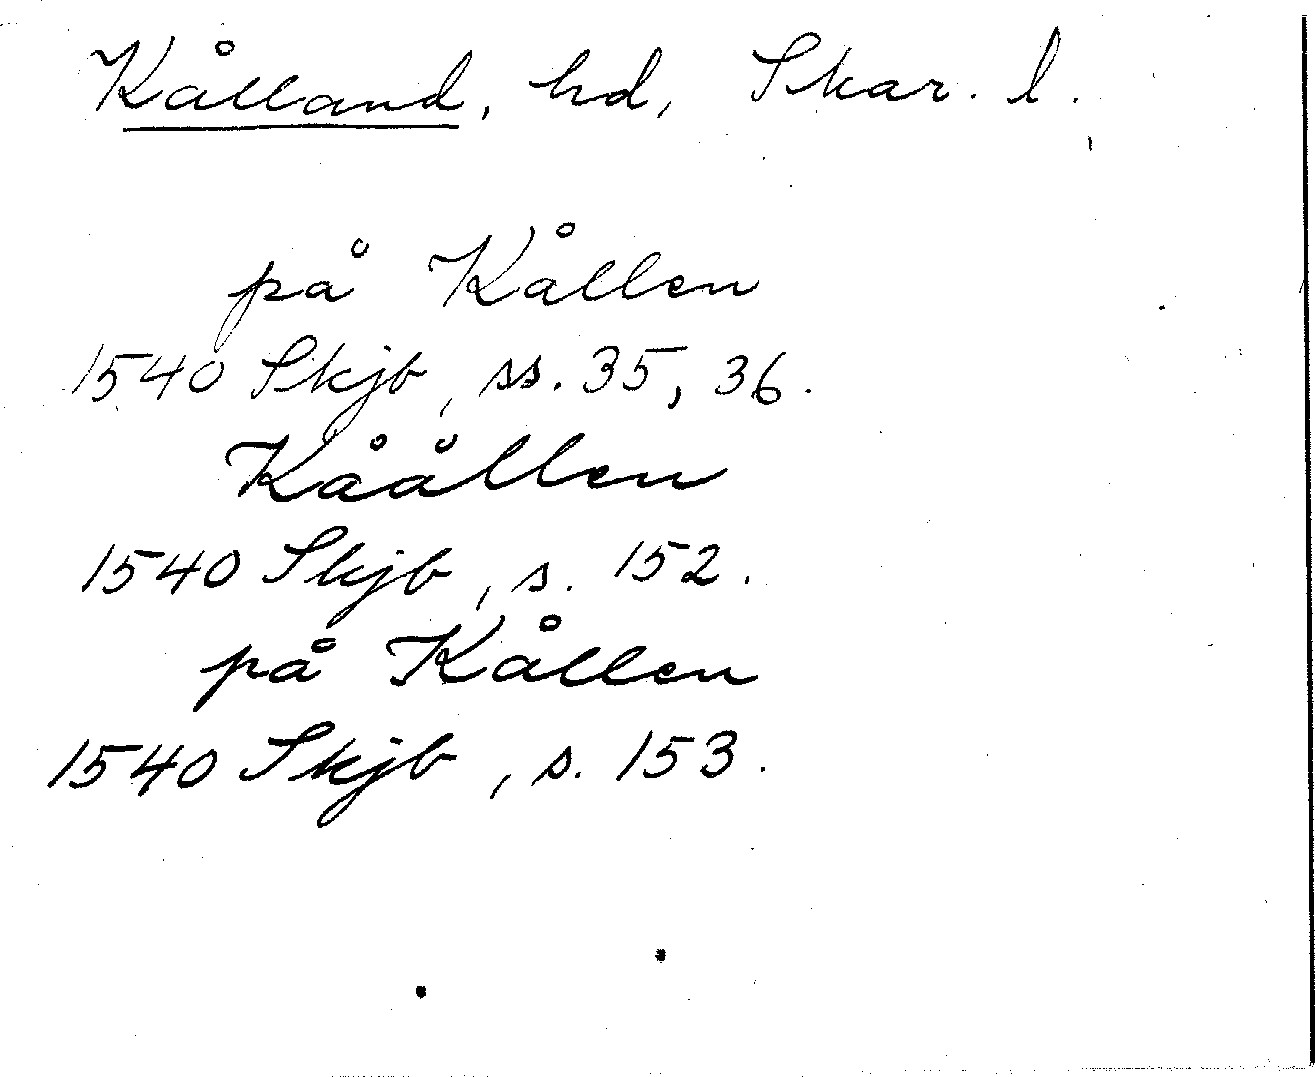 Kålland, hd, Skar. l.
på Kållen
1540 Skjb, ss. 35, 36.
Kåållen
1540 Skjb, s. 152.
på Kållen
1540 Skjb, s. 153.